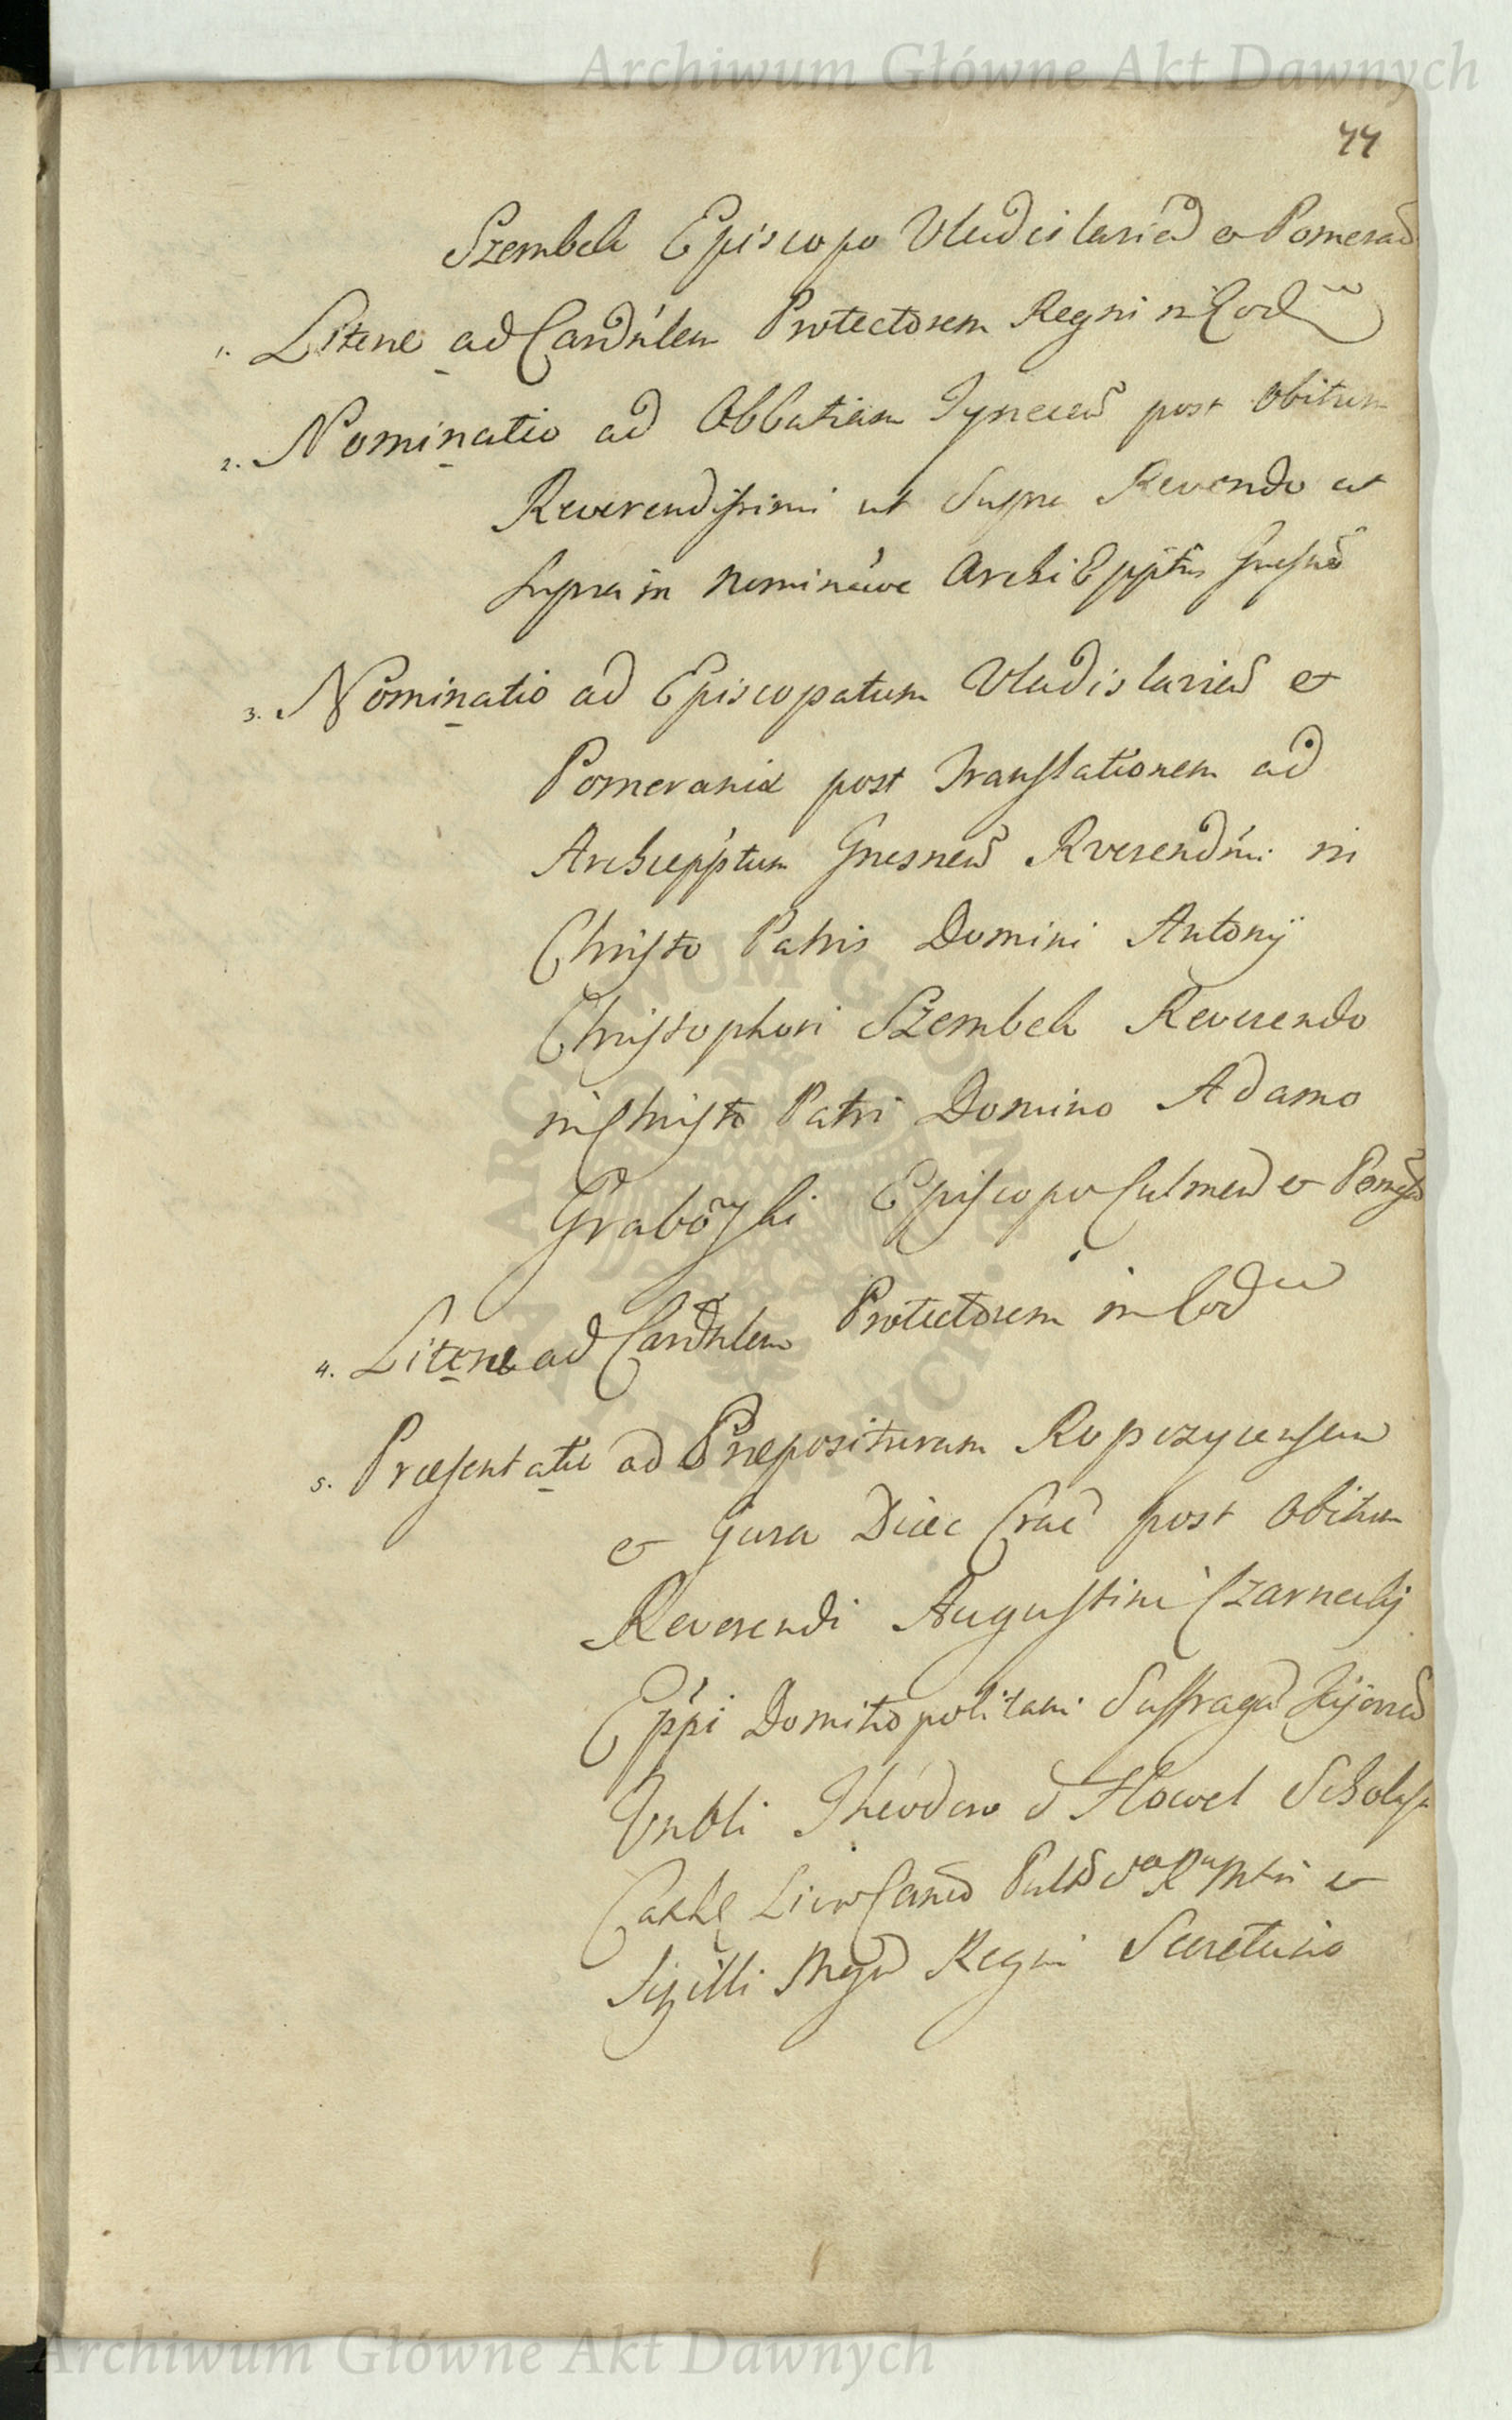 Archiwum Główne Akt Dawnych
44
Szembek Episcopo Vladislavien et Pomeran
1. Literae ad Cardnlem Protectorem Regni in Eod
2. Nominatio ad Abbatiam Tynecen post obitum
Reverendissimi ut supra Reverendo ut
supra in Archi Epptus Gnesnen
3. Nominatio ad Episcopatum Vladislavien et
Pomeraniæ post Translationem ad
Archiepptum Gnesnen Rverendmi in
Christo Patris Domini Antonij
Christophori Szembek Reverendo
in Christo Patri Domino Adamo
Grabowski Episcopo Culmen et
4. Literae ad Cardnlem Protectorem in Eod
5. Præsentatio ad Præposituram Ropczycensem
et Gura Diæc Crac post obitum
Reverendi Augustini Czarneckij
Eppi Suffragan Kijovien
Vnbli Theodoro Howel Scholast
Livo Canco et
Sigilli Regni Secretario
ARCHIWUM GŁÓWNE AKT DAWNYCH
Archiwum Główne Akt Dawnych